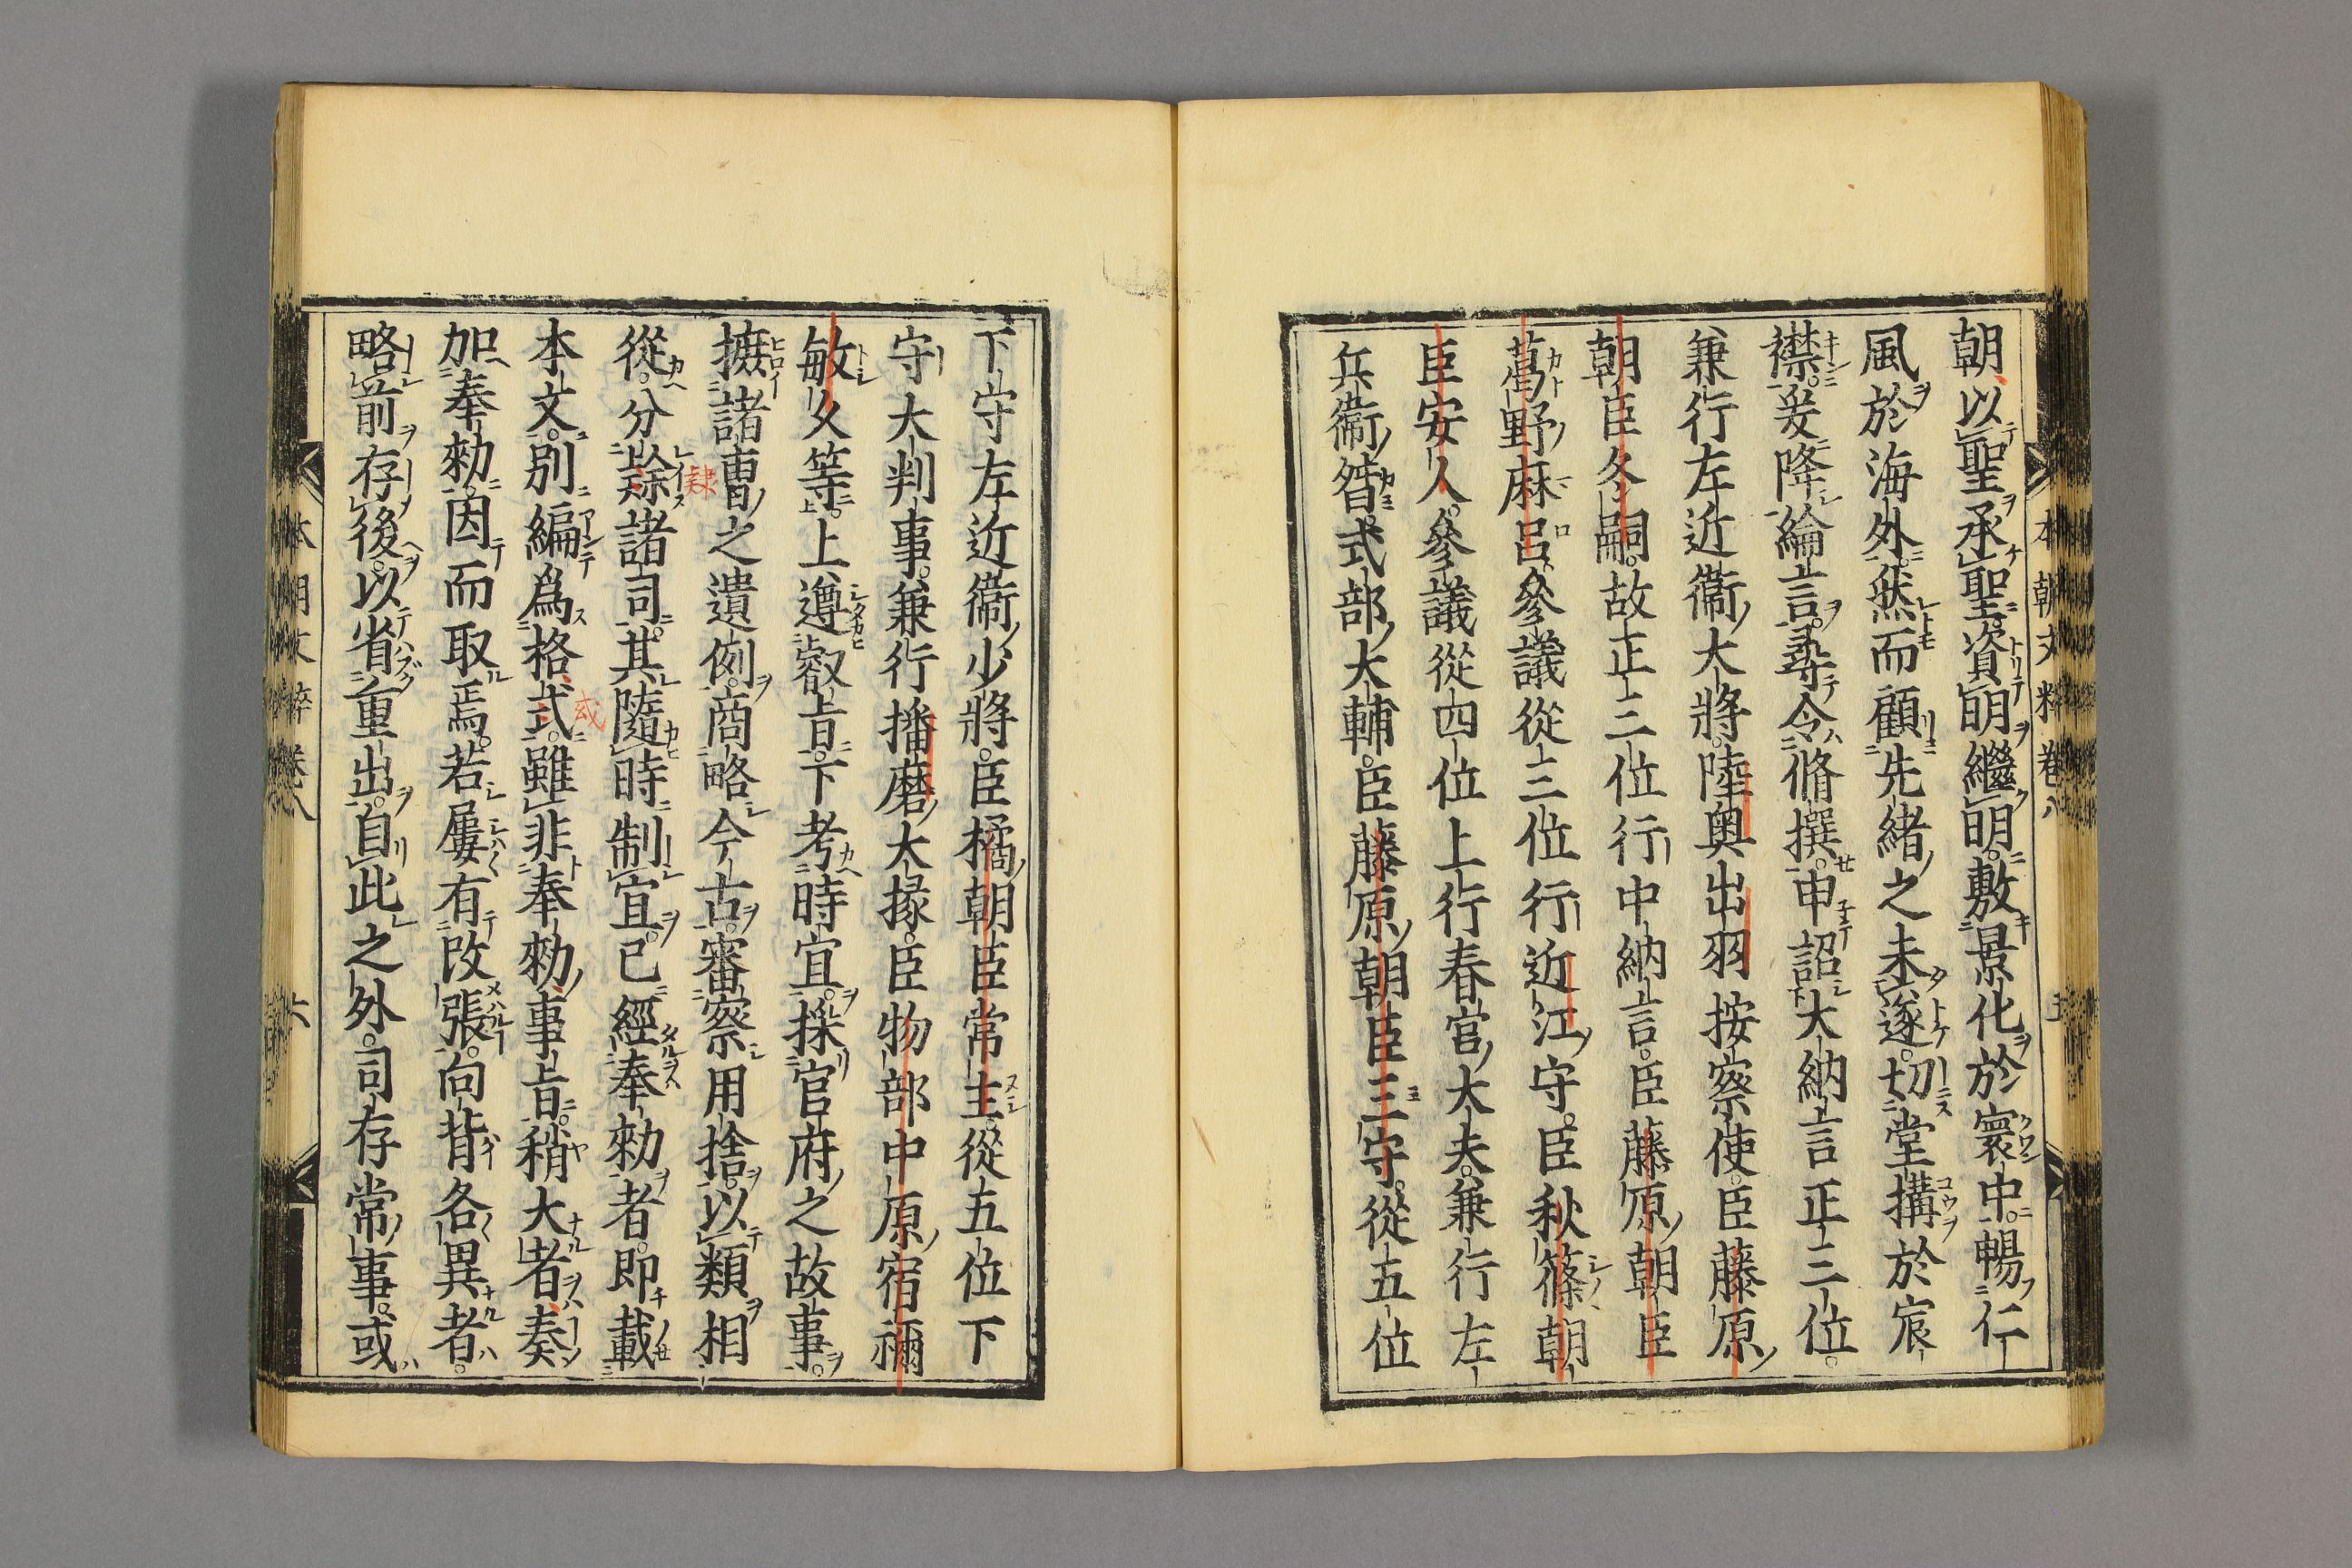 朝以聖承聖資明繼明敷景化於寰中暢仁
風於海外然而顧先緒之未遂切堂搆於宸
襟爰降綸言尋令脩撰申詔大納言正三位
兼行左近衞大將陸奧出羽按察使臣藤原
朝臣冬嗣故正三位行中納言臣藤原朝臣
葛野麻呂參議從三位行近江守臣秋篠朝
臣安人參議從四位上行春宮大夫兼行左
兵衞督式部大輔臣藤原朝臣三守從五位
下守左近衞少將臣橘朝臣常主從五位下
守大判事兼行播磨大掾臣物部中原宿禰
敏久等上遵叡旨下考時宜採官府之故事
摭諸曹之遺例商略今古審察用捨以類相
從分隷諸司其隨時制宜已經奉勑者即載
本文別編爲格式雖非奉勑事旨稍大者奏
加奉勑因而取焉若屢有改張向背各異者
略前存後以省重出自此之外司存常事或
本朝文粹卷八
五
本朝文粹卷八
六
隷
或